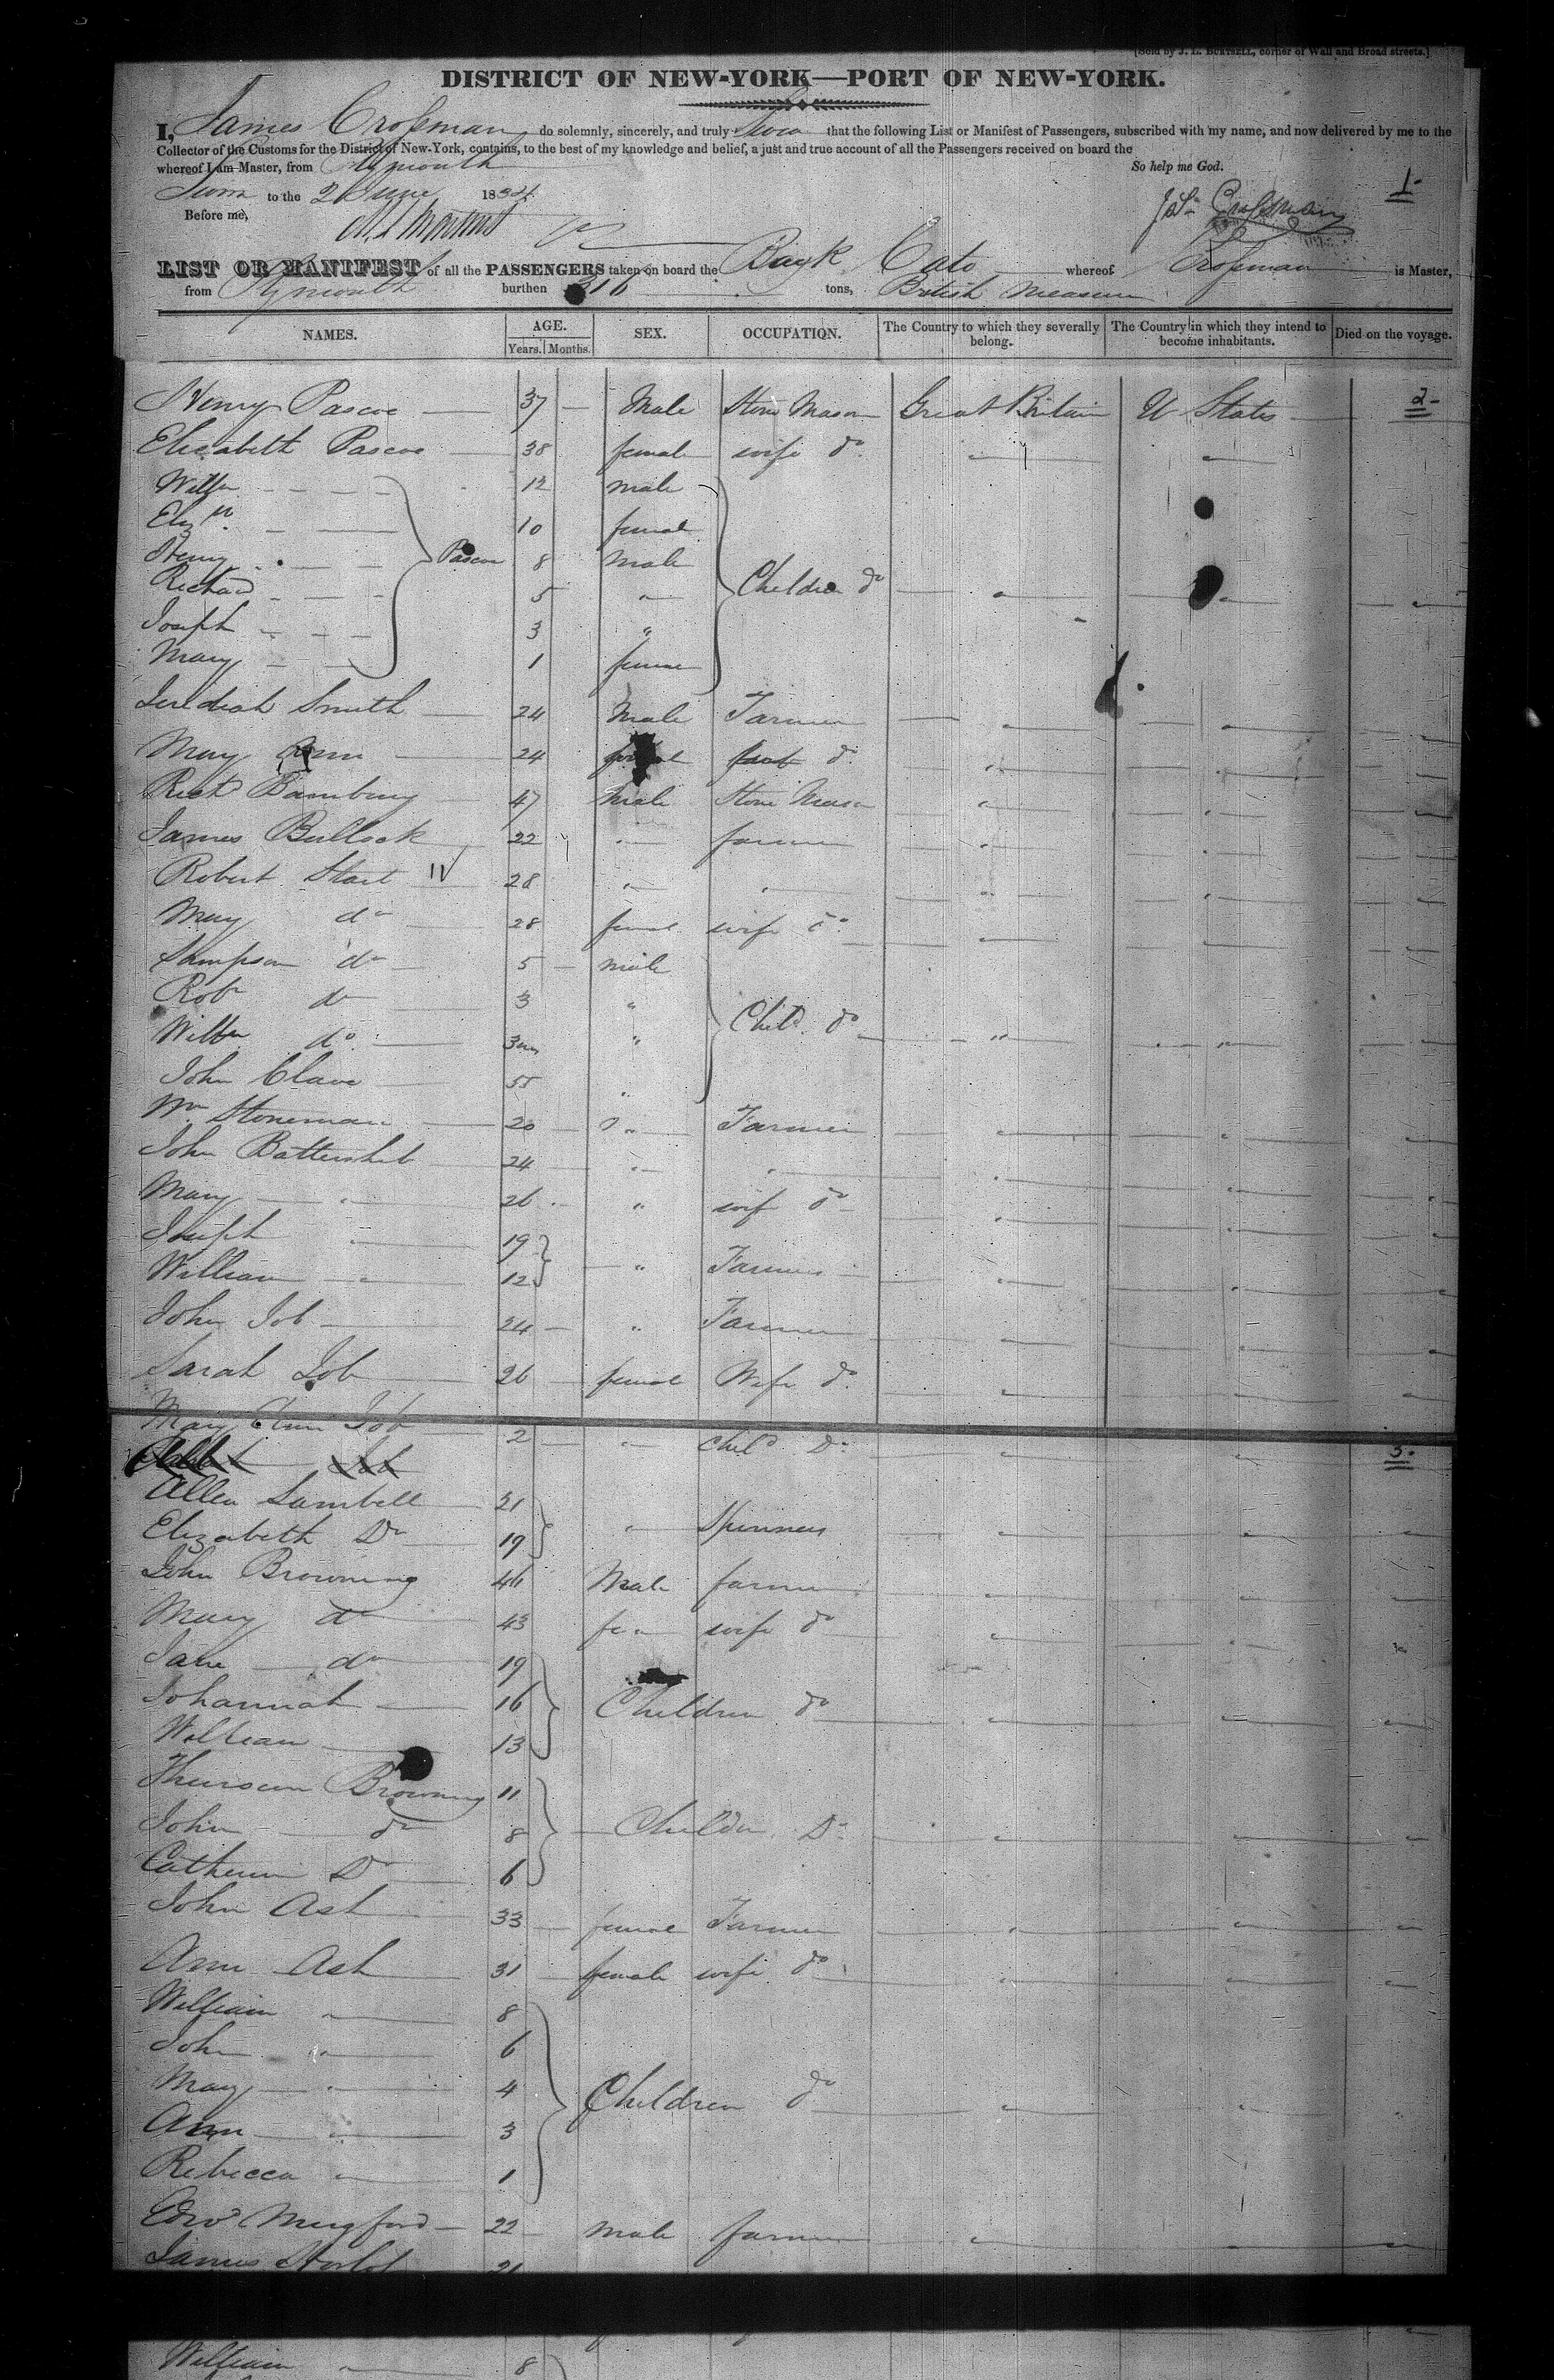 [Sold by J. L. BURTSELL, corner of Wall and Broad streets.]
DISTRICT OF NEW-YORK—PORT OF NEW-YORK.
I, James Crofsman do solemnly, sincerely, and truly Swear that the following List or Manifest of Passengers, subscribed with my name, and now delivered by me to the
Collector of the Customs for the District of New-York, contains, to the best of my knowledge and belief, a just and true account of all the Passengers received on board the
whereof I am Master, from Plymouth So help me God.
Sworn to the 2 June 1834 1-
Before me, Jas. Crofsman
LIST OR MANIFEST of all the PASSENGERS taken on board the Bark Cato whereof Crofsman is Master,
from Plymouth burthen 316 tons, British Measure
NAMES. AGE. Years. Months. SEX. OCCUPATION. The Country to which they severally belong. The Country in which they intend to become inhabitants. Died on the voyage.
Henry Pascoe 37 Male Stone Mason Great Britain U States 2-
Elizabeth Pascoe 38 female wife do
Willm 12 male
Elizth 10 female
Henry Pascoe 8 male
Richard 5 " Children do
Joseph 3 "
Mary 1 female
Jerediah Smith 24 Male Farmer
Mary Ann 24 female do
Richd Bambury 47 male Stone Mason
James Bullock 22 " farmer
Robert Start 28 " "
Mary do 28 female wife do
Sampson do 5 male
Robt do 3 "
Willm do 3m " Child do
John Clave 55 "
Wm Stoneman 20 " Farmer
John Battershib 24 " "
Mary " 26 " wife do
Joseph " 19
William " 12 " Farmers
John Job 24 " Farmer
Sarah Job 26 female Wife do
Mary Ann Job 2 " Child Do 3-
Job
Allen Lambell 21
Elizabeth Do 19 " Spinners
John Browning 46 Male farmer
Mary do 43 fem wife do
Jane do 19
Johannah 16 Children do
William 13
Browning 11
John do 8 Childn Do
Catherine Do 6
John Ash 33 female Farmer
Ann Ash 31 female wife do
William " 8
John " 6
Mary " 4 Children do
Ann " 3
Rebecca " 1
Edwd Mugford 22 male farmer
James 21
William " 8